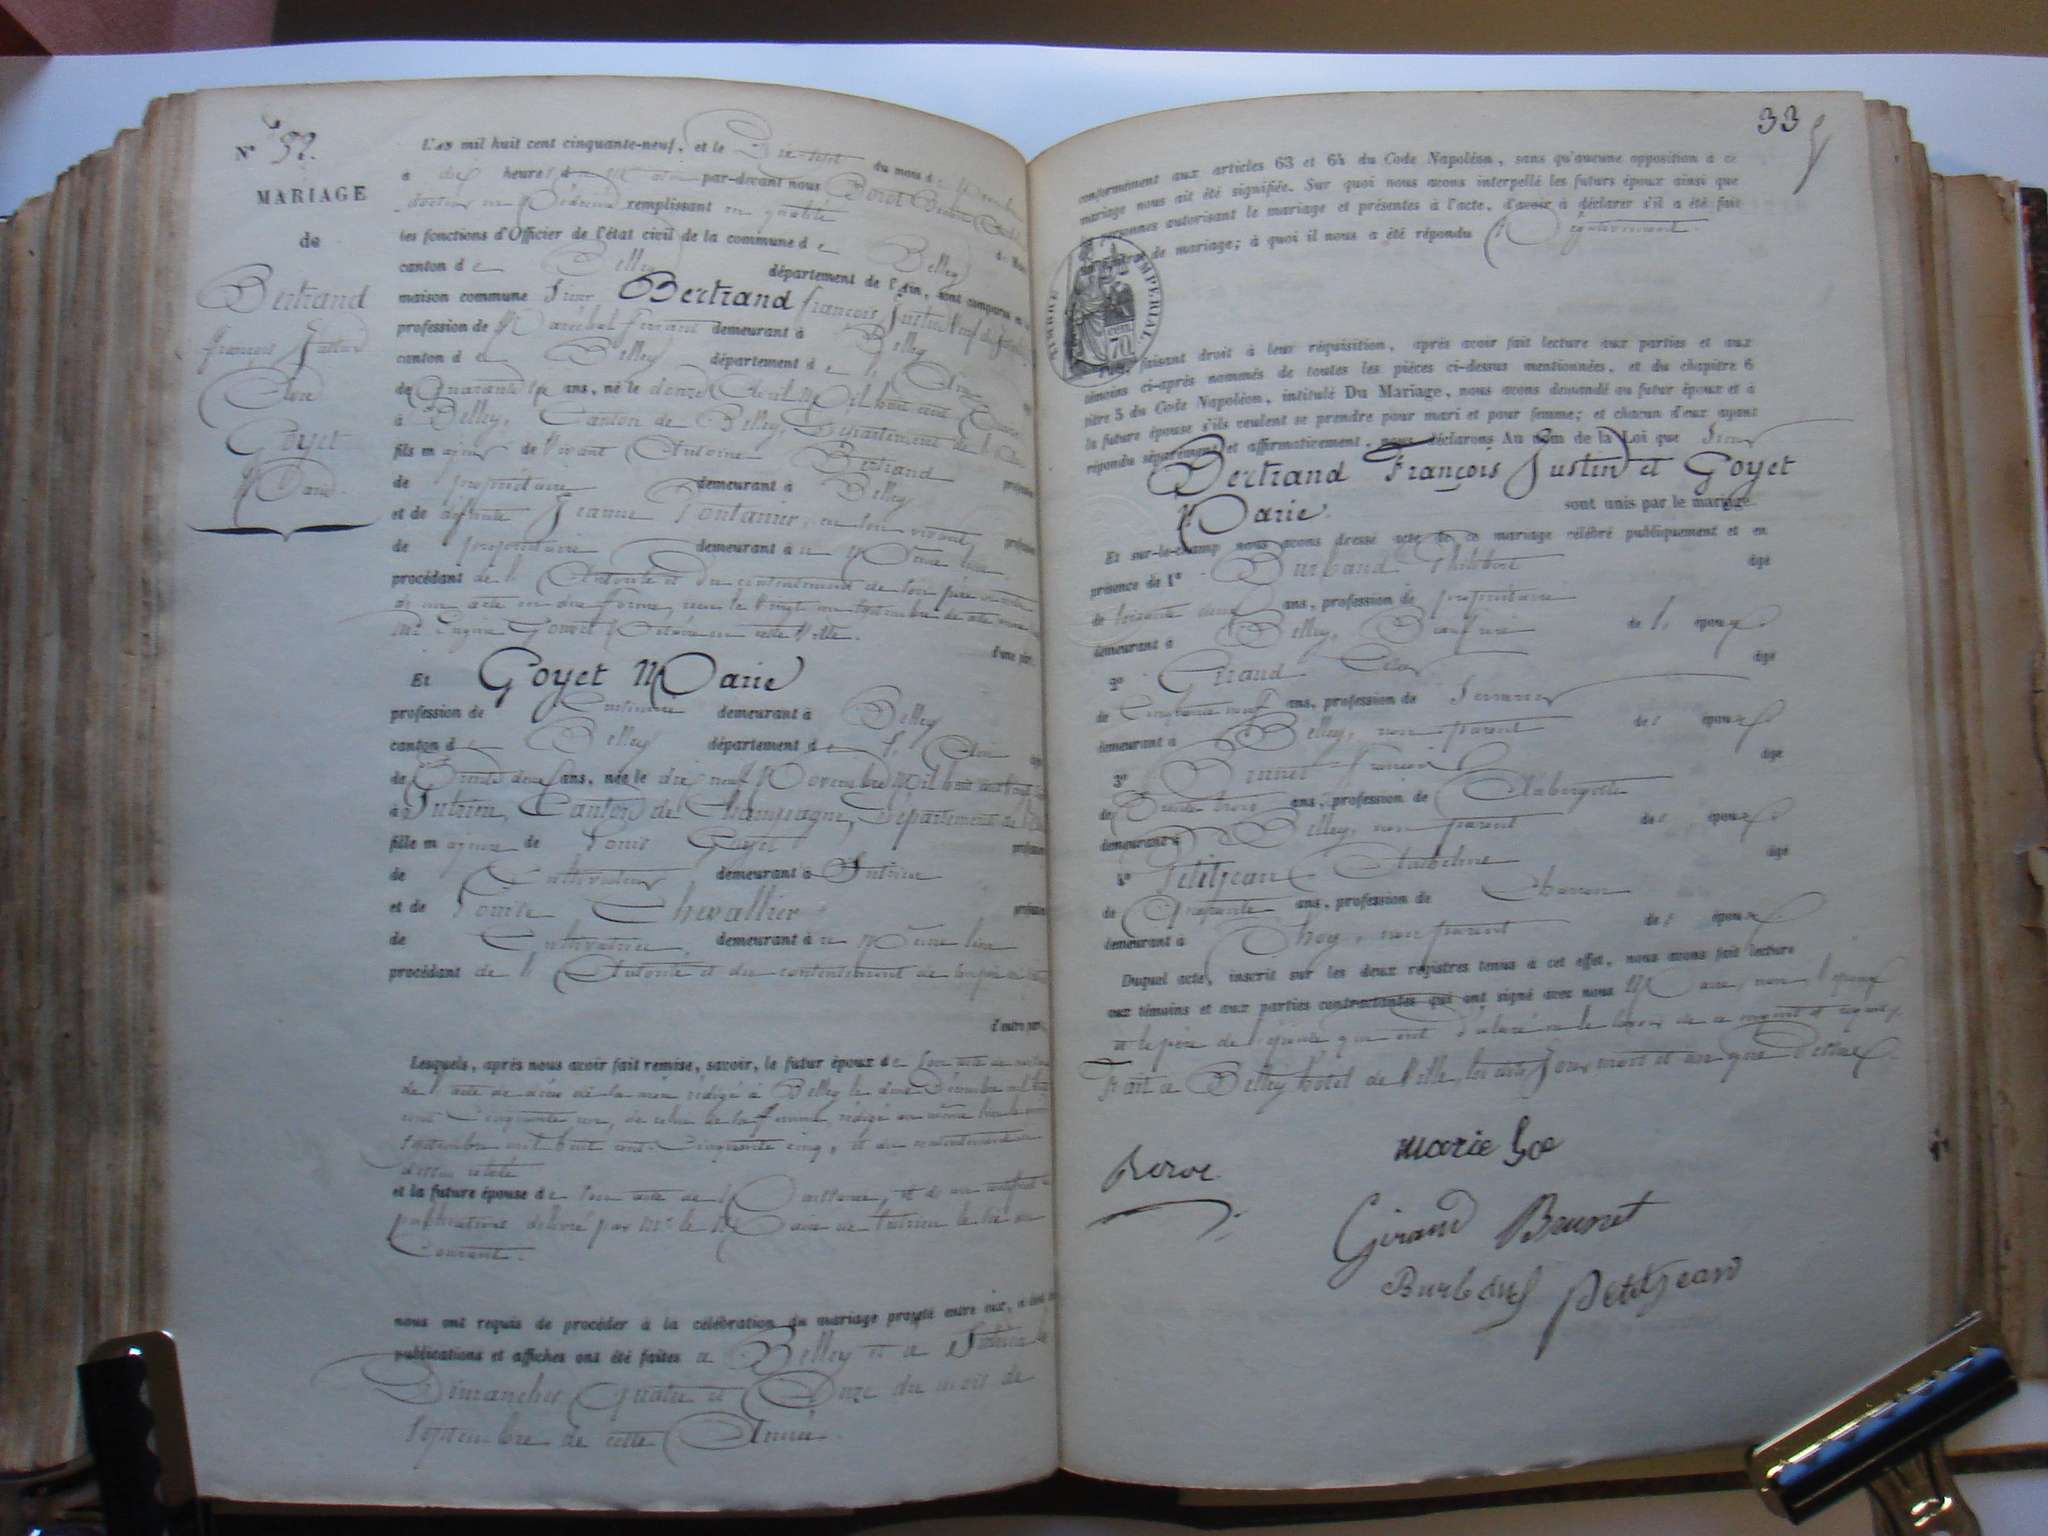 N° 32.
MARIAGE
de
Bertrand
françois Justin
et
Goyet
Marie.
L'AN mil huit cent cinquante-neuf, et le du mois de
à dix heures du par-devant nous
docteur en Médecine remplissant en qualité de Maire
les fonctions d'Officier de l'état civil de la commune de Belley
canton de Belley département de l'Ain, sont comparus en la
maison commune Sieur Bertrand françois Justin Veuf de
profession de Maréchal ferrant demeurant à Belley
canton de Belley département de l'Ain
de Quarante sept ans, né le douze Avril Mil huit cent Douze
à Belley, Canton de Belley, Département de l'Ain
fils majeur de vivant Antoine Bertrand profession
de propriétaire demeurant à Belley
et de défunte Jeanne en son vivant, profession
de propriétaire demeurant à au Même lieu
procédant de l'Autorité et du consentement de son père
d'un acte en due forme, reçu le Vingt un septembre de cette année
Me Eugène Notaire en cette Ville.
d'une part.
Et Goyet Marie
profession de Cuisinière demeurant à Belley
canton de Belley département de l'Ain âgée
de Trente deux ans, née le dix neuf Novembre Mil huit cent vingt
à Sutrieu, Canton de Champagne, Département de l'Ain
fille majeure de Louis Goyet profession
de Cultivateur demeurant à Sutrieu
et de Louise Chevallier profession
de Cultivatrice demeurant à au Même lieu
procédant de l'Autorité et du consentement de son père
d'autre part.
Lesquels, après nous avoir fait remise, savoir, le futur époux de son acte de
de l'acte de décès de sa mère rédigé à Belley le Décembre mil huit
cent Cinquante un, de celui de sa femme, rédigé au même lieu le
septembre mil huit cent Cinquante cinq, et du consentement
dessus relaté
et la future épouse de son acte de Naissance, et d'un certificat de
publications délivré par Mr le Maire de Sutrieu le
Courant.
nous ont requis de procéder à la célébration du mariage projeté entre eux,
publications et affiches ont été faites à Belley et à Sutrieu le
Dimanches Quatre et Onze du mois de
septembre de cette Année.
33
conformément aux articles 63 et 64 du Code Napoléon, sans qu'aucune opposition à ce
mariage nous ait été signifiée. Sur quoi nous avons interpellé les futurs époux ainsi que
les personnes autorisant le mariage et présentes à l'acte, d'avoir à déclarer s'il a été fait
un contrat de mariage; à quoi il nous a été répondu Négativement.
TIMBRE IMPERIAL
70 cen.
Puis, faisant droit à leur réquisition, après avoir fait lecture aux parties et aux
témoins ci-après nommés de toutes les pièces ci-dessus mentionnées, et du chapitre 6
titre 5 du Code Napoléon, intitulé Du Mariage, nous avons demandé au futur époux et à
la future épouse s'ils veulent se prendre pour mari et pour femme; et chacun d'eux ayant
répondu séparément et affirmativement, nous déclarons Au nom de la Loi que Sieur
Bertrand François Justin et Goyet
Marie. sont unis par le mariage.
Et sur-le-champ nous avons dressé acte de ce mariage célébré publiquement et en
présence de 1° Burbaud Philibert âgé
de soixante deux ans, profession de propriétaire
demeurant à Belley, Beaufrère de l'époux.
2° Giraud âgé
de Cinquante neuf ans, profession de Serrurier
demeurant à Belley, non parent des époux.
3° Brunet François âgé
de Trente trois ans, profession de Aubergiste
demeurant à Belley, non parent des époux.
4° Petitjean Anthelme âgé
de Quarante ans, profession de Charron
demeurant à non parent des époux.
Duquel acte, inscrit sur les deux registres tenus à cet effet, nous avons fait lecture
aux témoins et aux parties contractantes qui ont signé avec nous Maire, non l'époux
et le père de l'épouse qui ont déclaré ne le savoir de ce enquis et requis.
Fait à Belley hôtel de Ville, les dits Jour mois et an que Dessus.
marie Go
Giraud Brunet
Burbaud Petitjean